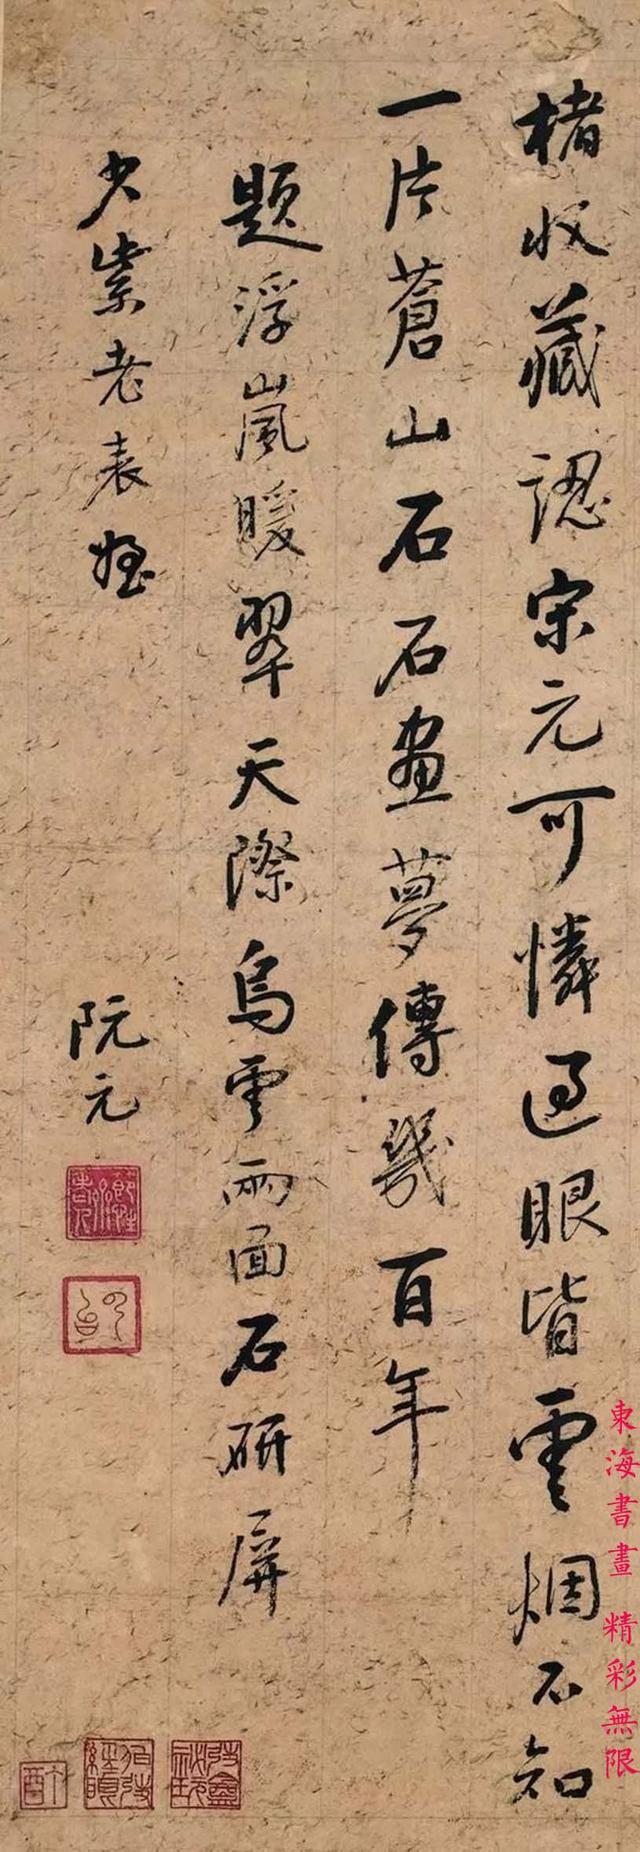 楮收藏認宋元可憐過眼皆雲烟不知
一片蒼山石石畫夢傳幾百年
題浮嵐暖翠天際烏雲兩面石研屏
少紫老表姪
阮元
東海書畫 精彩無限